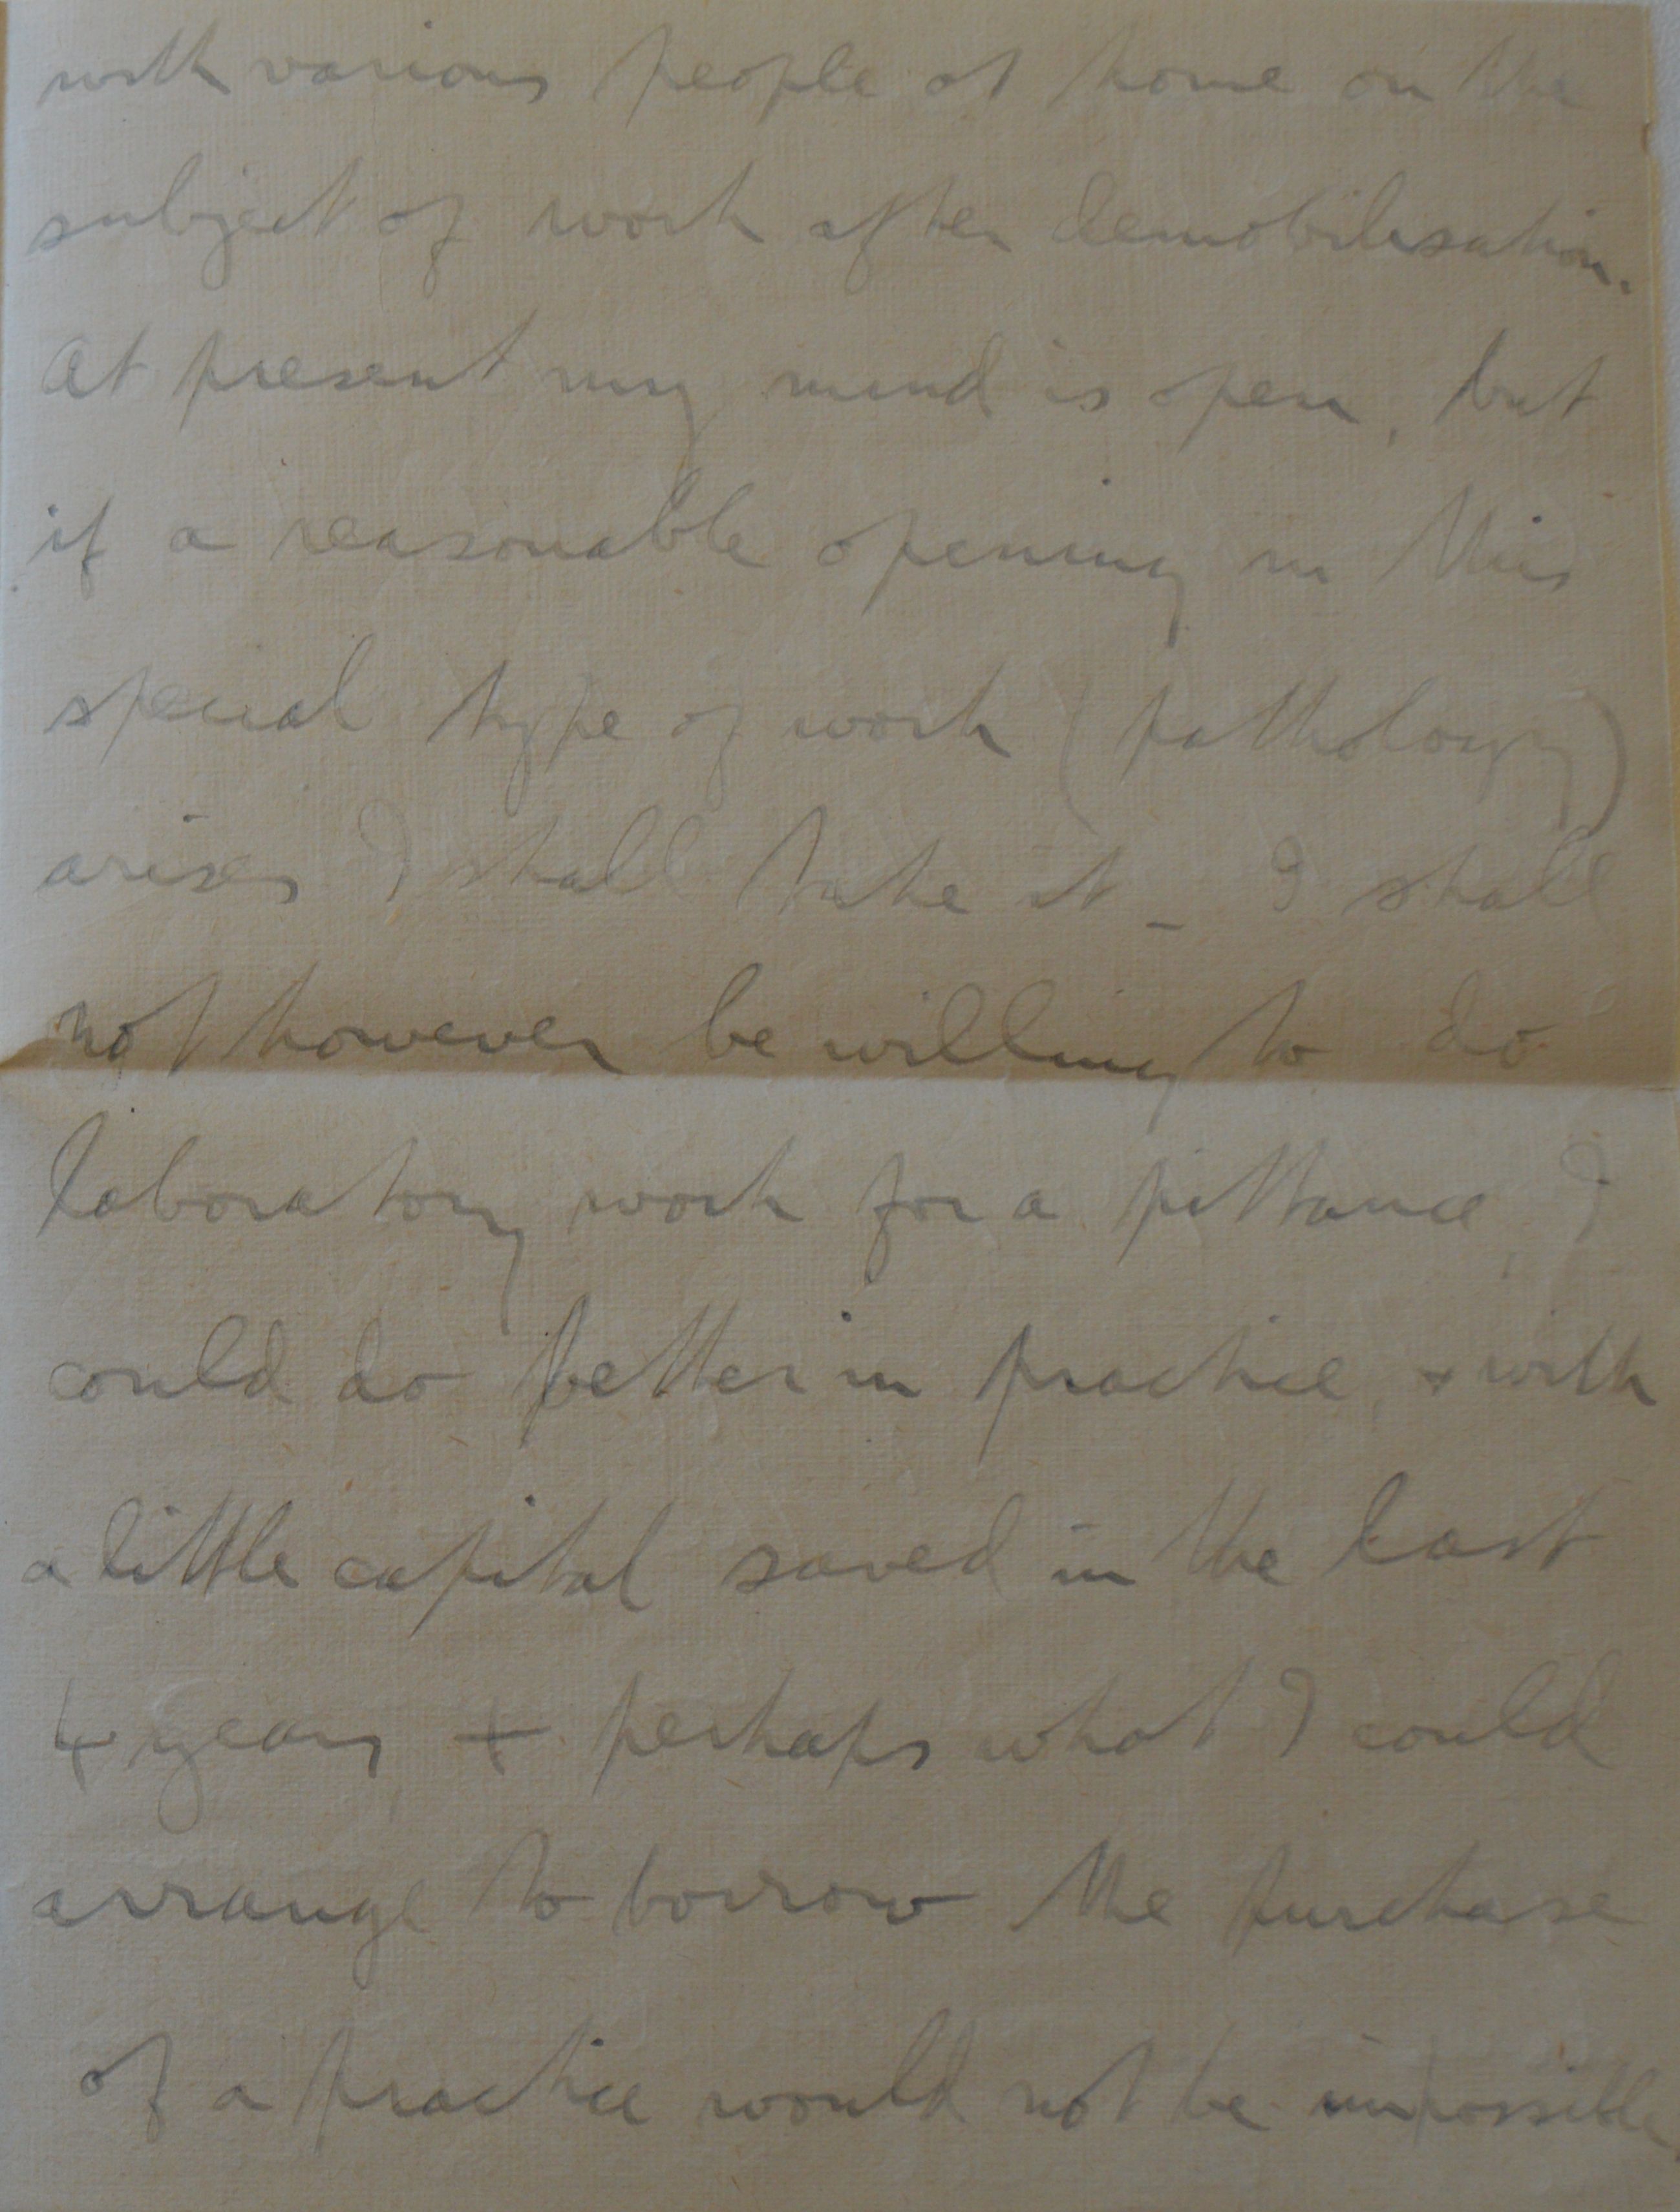 with various people at home on the
subject of work after demobilisation.
At present my mind is open, but
if a reasonable opening in this
special type of work (pathology)
arises I shall take it _ I shall
not however be willing to do
laboratory work for a pittance, I
could do better in practice, + with
a little capital saved in the last
4 years, + perhaps what I could
arrange to borrow the purchase
of a practice would not be impossible